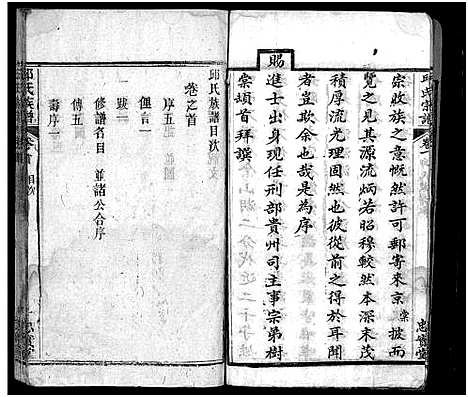 邱氏宗譜
宗收族之意慨然許可郵寄來京棠披而
覽之見其源流炳若昭穆較然本深末茂
積厚流光理固然也彼從前之得於耳聞
者豈欺余也哉是為序
賜
進士出身現任刑部貴州司主事宗弟樹
棠頓首拜譔
忠實堂
邱氏族譜目次
卷之首
序五
俚言一
跋一
修譜名目 並諸公合序
傳五
壽序一
邱氏族譜
卷首
目次